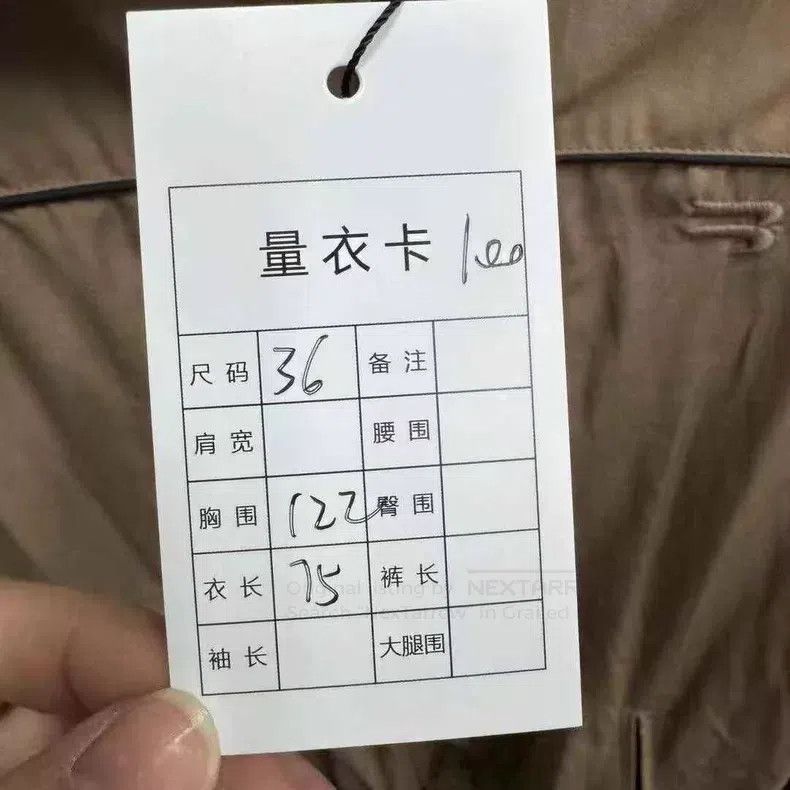 量衣卡 100
尺码 36 备注
肩宽 腰围
胸围 122 臀围
衣长 75 裤长
袖长 大腿围
Original listing by NEXTARR
Search "NexTarrow" in Grailed